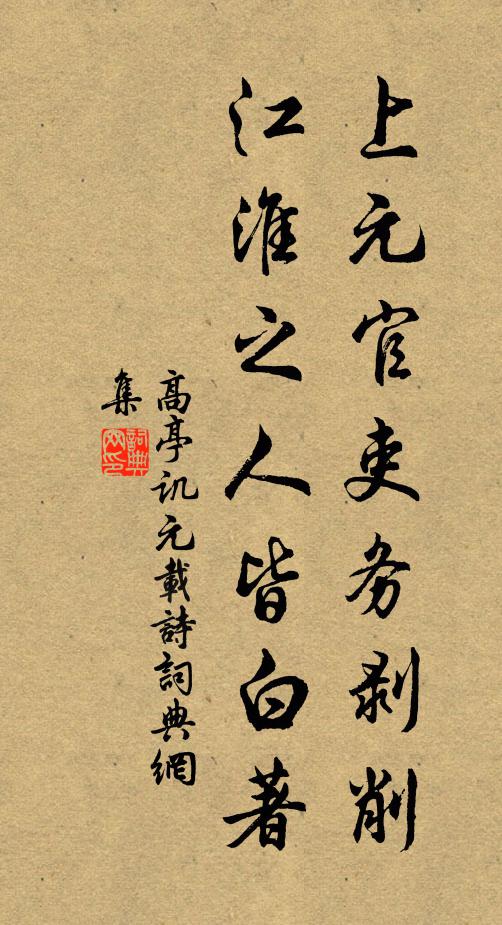 上元官吏务剥削
江淮之人皆白著
高亭讥元載詩詞典網
集
詞典
网印